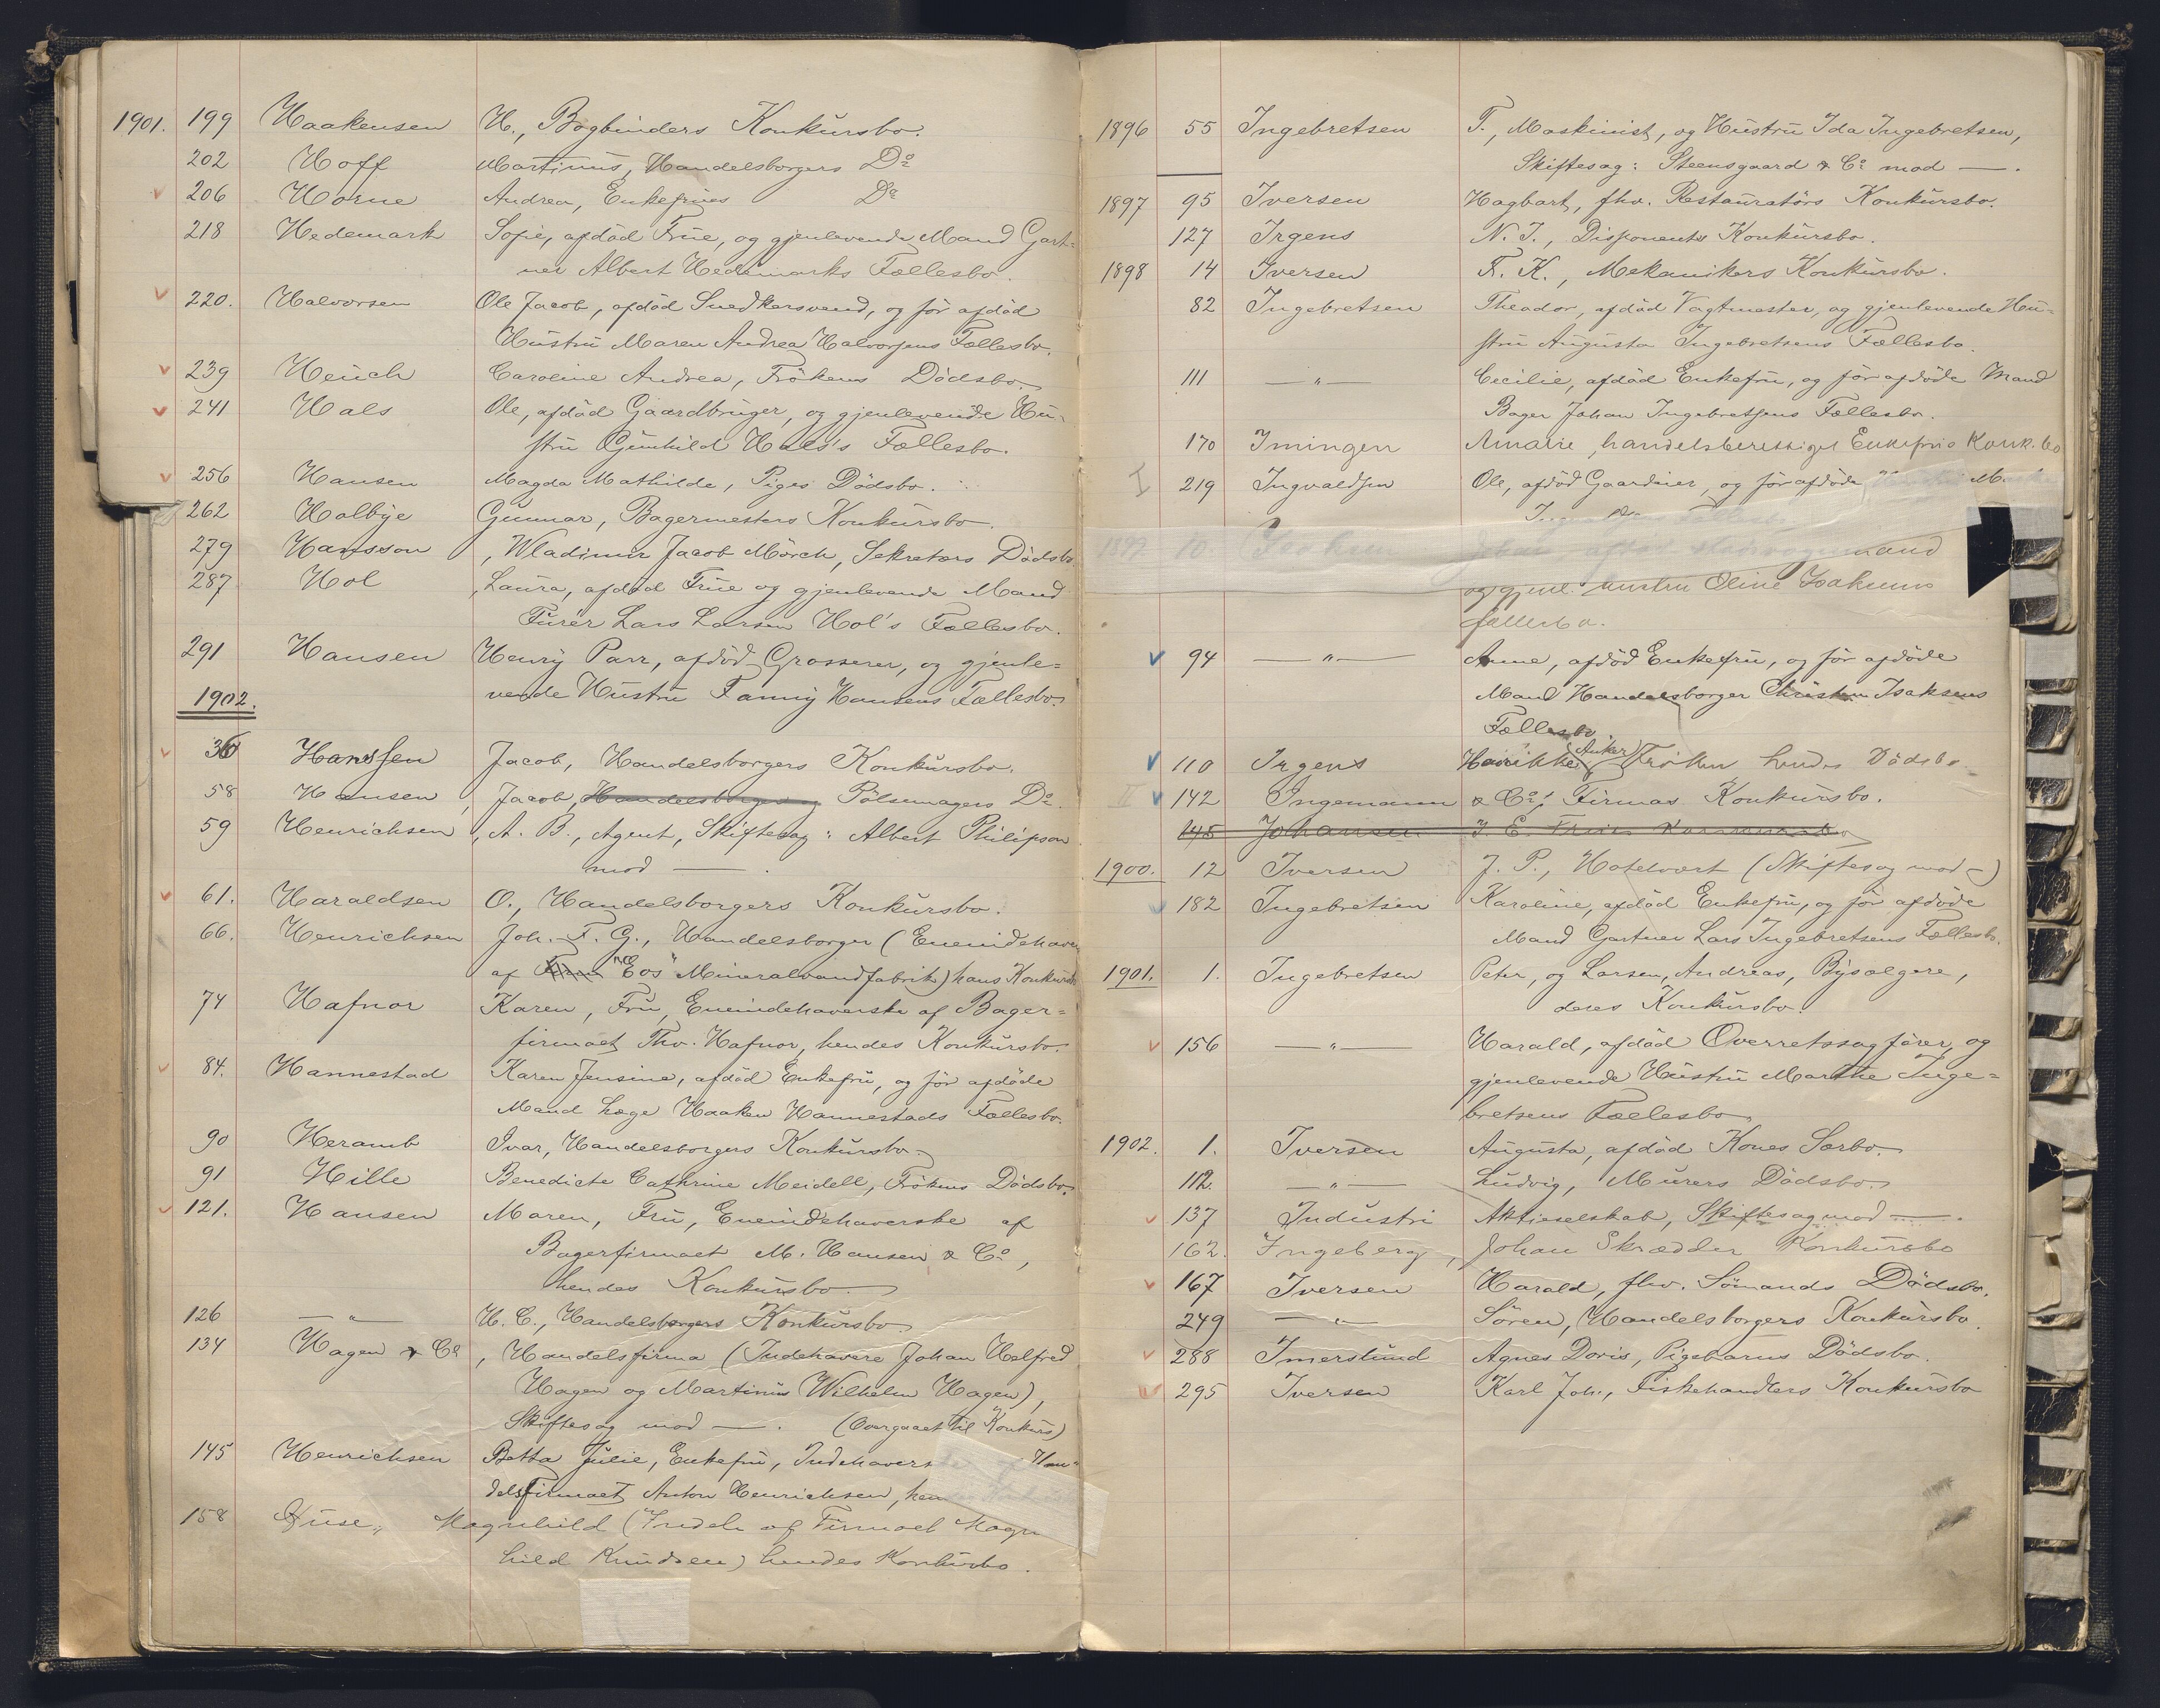 1901. 199 Haakensen H., Bogbinders Konkursbo.
202 Hoff Martinus, Handelsborgers Do
206 Horne Andrea, Enkefrues Do
218 Hedemark Sofie, afdöd Frue, og gjenlevende Mand Gart-
ner Albert Hedemarks Fællesbo.
220. Halvorsen Ole Jacob, afdöd Snedkersvend, og för afdöd
Hustru Maren Andrea Halvorsens Fællesbo.
239 Heuch Caroline Andrea, Frökens Dödsbo.
241 Hals Ole, afdöd Gaardbruger, og gjenlevende Hu-
stru Gunhild Hals's Fællesbo.
256 Hansen Magda Mathilde, Piges Dödsbo.
262 Holbye Gunnar, Bagermesters Konkursbo.
279 Hansson, Wladimir Jacob Mörch, Sekretærs Dödsbo
287 Hol, Laura, afdöd Frue og gjenlevende Mand
Furér Lars Larsen Hol's Fællesbo.
291 Hansen Henry Parr, afdöd Grosserer, og gjenle-
vende Hustru Fanny Hansens Fællesbo.
1902.
36 Hanssen Jacob, Handelsborgers Konkursbo.
58 Hansen, Jacob, Handelsborger og Pölsemagers Do.
59 Henrichsen, A. B., Agent, Skiftesag: Albert Philipson
mod —.
61. Haraldsen O., Handelsborgers Konkursbo.
66. Henrichsen Joh. F. G., Handelsborger (Eneindehaver
af Firma "Eos" Mineralvandfabrik) hans Konkursbo
74 Hafnor Karen, Fru, Eneindehaverske af Bager-
firmaet Thv. Hafnor, hendes Konkursbo.
84. Hannestad Karen Jensine, afdöd Enkefru, og för afdöde
Mand Læge Haaken Hannestads Fællesbo.
90 Heramb Ivar, Handelsborgers Konkursbo.
91 Hille Benedicte Cathrine Meidell, Frökens Dödsbo.
121. Hansen Maren, Fru, Eneindehaverske af
Bagerfirmaet M. Hansen & Co,
hendes Konkursbo.
126 — " — H. C., Handelsborgers Konkursbo.
134 Hagen & Co, Handelsfirma (Indehavere Johan Helfred
Hagen og Martinus Wilhelm Hagen),
Skiftesag mod —. (Overgaaet til Konkurs)
145 Henrichsen Betta Julie, Enkefru, Indehavers Han-
delsfirmaet Anton Henrichsen, hen
158 Huse, Magnhild (Indeh. af Firmaet Magn
hild Knudsen) hendes Konkursbo.
1896 55 Ingebretsen T., Maskinist, og Hustru Ida Ingebretsen,
Skiftesag: Steensgaard & Co mod —.
1897 95 Iversen Hagbart, fhv. Restauratörs Konkursbo.
127 Irgens N. J., Disponents Konkursbo.
1898 14 Iversen F. K., Mekanikers Konkursbo.
82 Ingebretsen Theodor, afdöd Vagtmester, og gjenlevende Hu-
stru Augusta Ingebretsens Fællesbo.
111 — " — Cecilie, afdöd Enkefru, og för afdöde Mand
Bager Johan Ingebretsens Fællesbo.
170 Imingen Amalie, handelsberettiget Enkefrus Konk.bo
I 219 Ingvaldsen Ole, afdöd Gaardeier, og för afdöde
1899 10 mand
og gjenl. Hustru Oline Isaksens
fællesbo.
94 — " — Anne, afdöd Enkefru, og för afdöde
Mand Handelsborger Christian Isaksens
Fællesbo
110 Irgens Henrikke (Anker) Fröken hendes Dödsbo
II 142 Ingemann & Co's Firmas Konkursbo.
145 Johansen J. E.
1900. 12 Iversen J. P., Hotelvært (Skiftesag mod —)
182 Ingebretsen Karoline, afdöd Enkefru, og för afdöde
Mand Gartner Lars Ingebretsens Fællesbo.
1901. 1. Ingebretsen Peter, og Larsen, Andreas, Bysælgere,
deres Konkursbo.
156 — " — Harald, afdöd Overretssagförer, og
gjenlevende Hustru Marthe Inge-
bretsens Fællesbo.
1902. 1. Iversen Augusta, afdöd Kones Særbo.
112. — " — Ludvig, Murers Dödsbo.
137 Industri Aktieselskab, Skiftesag mod —.
162. Ingeberg, Johan Skrædder Konkursbo
167 Iversen Harald, fhv. Sömands Dödsbo.
249 — " — Sören, Handelsborgers Konkursbo.
288 Imerslund Agnes Doris, Pigebarns Dödsbo.
295 Iversen Karl Joh., Fiskehandlers Konkursbo